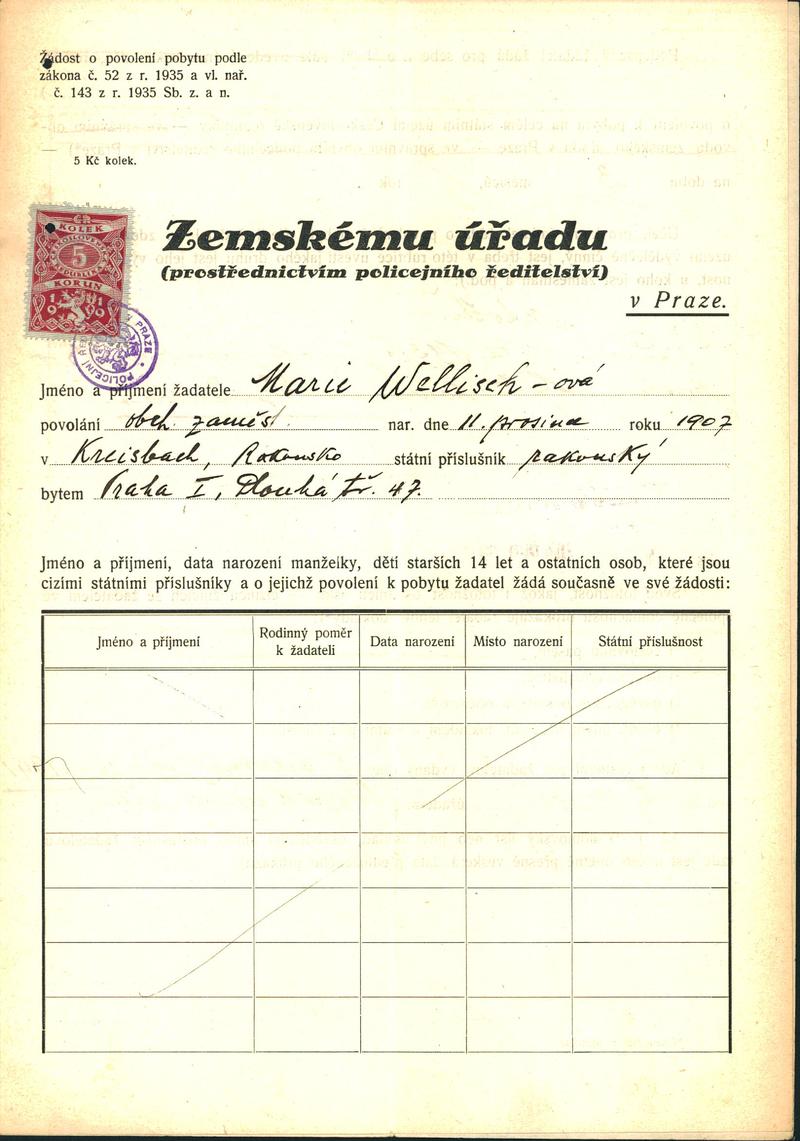 Žádost o povolení pobytu podle
zákona č. 52 z r. 1935 a vl. nař.
č. 143 z r. 1935 Sb. z. a n.
5 Kč kolek.
KOLEK
5
KORUN
Zemskému úřadu
(prostřednictvím policejního ředitelství)
v Praze.
Jméno a příjmení žadatele Marie Wellisch-ová
povolání obch. zaměst. nar. dne 11. prosince roku 1907
v Kreisbach, Rakousko státní příslušník rakouský
bytem Praha I, Dlouhá tř. 47.
Jméno a příjmení, data narození manželky, dětí starších 14 let a ostatních osob, které jsou
cizími státními příslušníky a o jejichž povolení k pobytu žadatel žádá současně ve své žádosti:
Jméno a příjmení Rodinný poměr k žadateli Data narození Místo narození Státní příslušnost